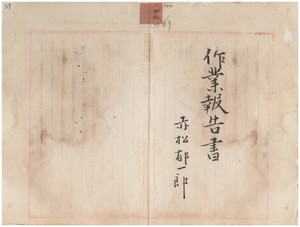 作業報告書
赤松郁一郎